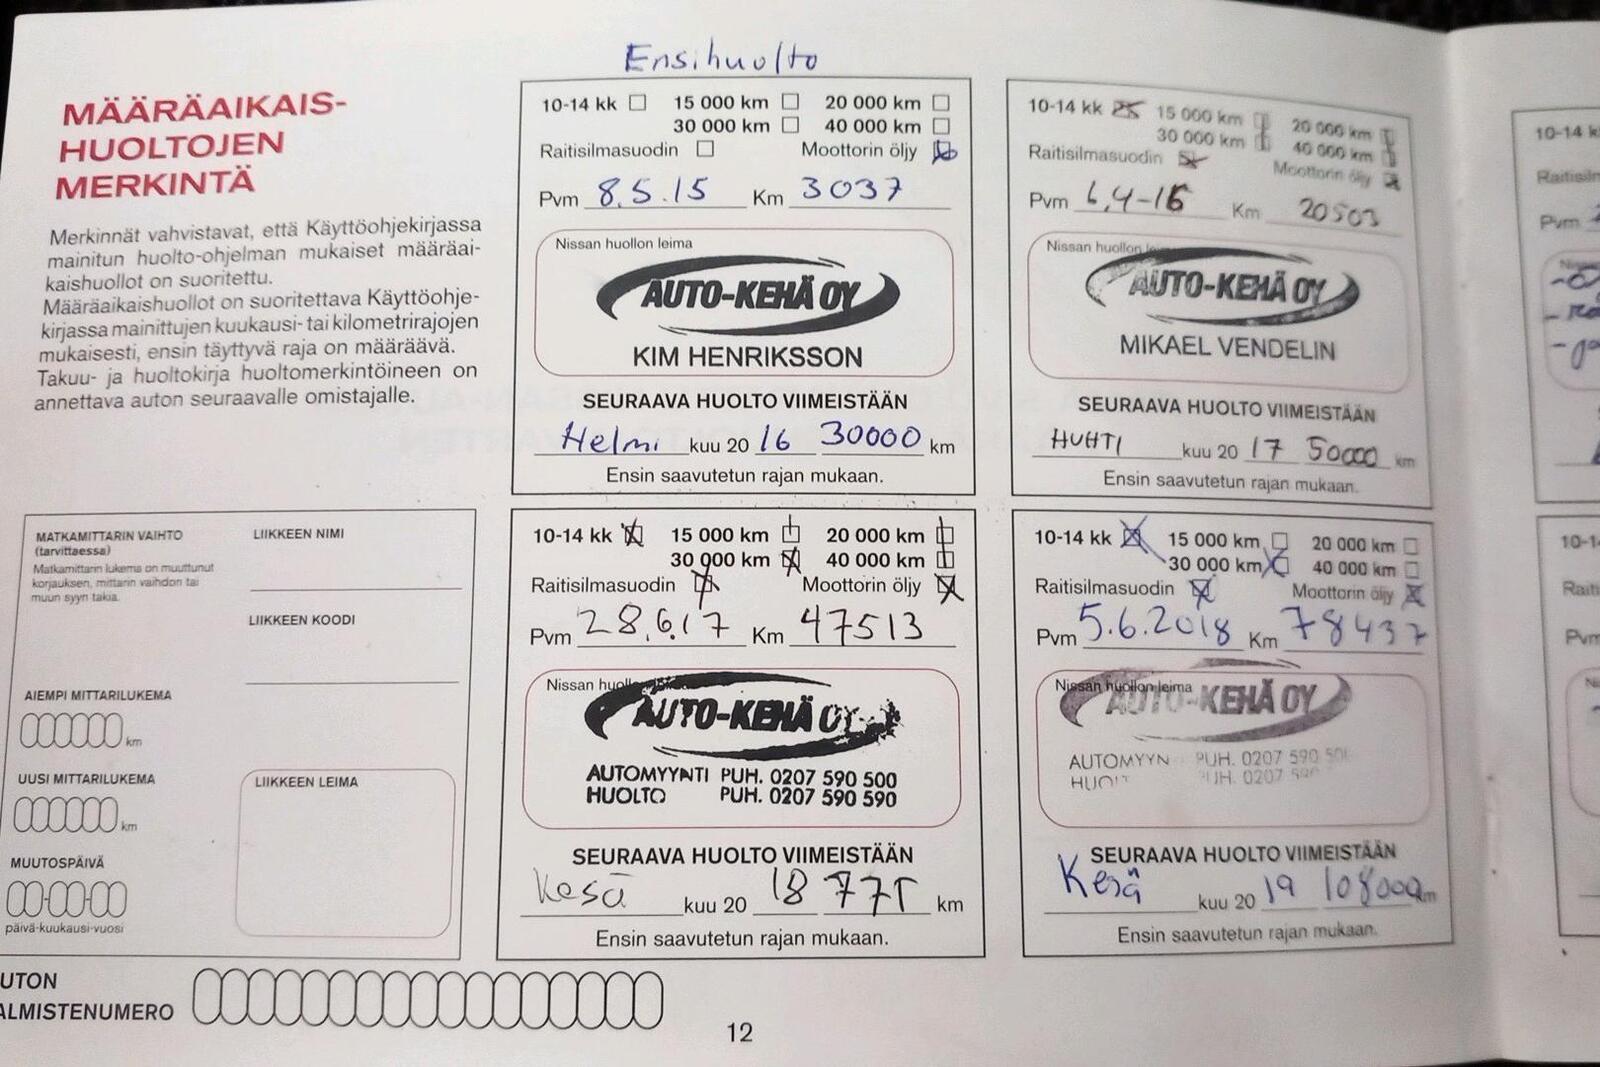 Ensihuolto
MÄÄRÄAIKAIS-
HUOLTOJEN
MERKINTÄ
Merkinnät vahvistavat, että Käyttöohjekirjassa
mainitun huolto-ohjelman mukaiset määräai-
kaishuollot on suoritettu.
Määräaikaishuollot on suoritettava Käyttöohje-
kirjassa mainittujen kuukausi- tai kilometrirajojen
mukaisesti, ensin täyttyvä raja on määräävä.
Takuu- ja huoltokirja huoltomerkintöineen on
annettava auton seuraavalle omistajalle.
10-14 kk 15 000 km 20 000 km
30 000 km 40 000 km
Raitisilmasuodin Moottorin öljy
Pvm 8.5.15 Km 3037
Nissan huollon leima
AUTO-KEHÄ OY
KIM HENRIKSSON
SEURAAVA HUOLTO VIIMEISTÄÄN
Helmi kuu 20 16 30000 km
Ensin saavutetun rajan mukaan.
10-14 kk 15 000 km 20 000 km
30 000 km 40 000 km
Raitisilmasuodin Moottorin öljy
Pvm 6,4-16 Km 20503
Nissan huollon leima
AUTO-KEHÄ OY
MIKAEL VENDELIN
SEURAAVA HUOLTO VIIMEISTÄÄN
HUHTI kuu 20 17 50000 km
Ensin saavutetun rajan mukaan.
MATKAMITTARIN VAIHTO
(tarvittaessa)
Matkamittarin lukema on muuttunut
korjauksen, mittarin vaihdon tai
muun syyn takia.
LIIKKEEN NIMI
LIIKKEEN KOODI
AIEMPI MITTARILUKEMA
km
UUSI MITTARILUKEMA
km
MUUTOSPÄIVÄ
päivä-kuukausi-vuosi
LIIKKEEN LEIMA
10-14 kk 15 000 km 20 000 km
30 000 km 40 000 km
Raitisilmasuodin Moottorin öljy
Pvm 28.6.17 Km 47513
Nissan huollon leima
AUTO-KEHÄ OY
AUTOMYYNTI PUH. 0207 590 500
HUOLTO PUH. 0207 590 590
SEURAAVA HUOLTO VIIMEISTÄÄN
Kesä kuu 20 18 77T km
Ensin saavutetun rajan mukaan.
10-14 kk 15 000 km 20 000 km
30 000 km 40 000 km
Raitisilmasuodin Moottorin öljy
Pvm 5.6.2018 Km 78437
Nissan huollon leima
AUTO-KEHÄ OY
AUTOMYYN PUH. 0207 590 500
HUOLT UH. 0207 590
SEURAAVA HUOLTO VIIMEISTÄÄN
Kesä kuu 20 19 108000 km
Ensin saavutetun rajan mukaan.
UTON
ALMISTENUMERO
12
10-14 k
Raitisiln
Pvm
10-1
Raiti
Pvm